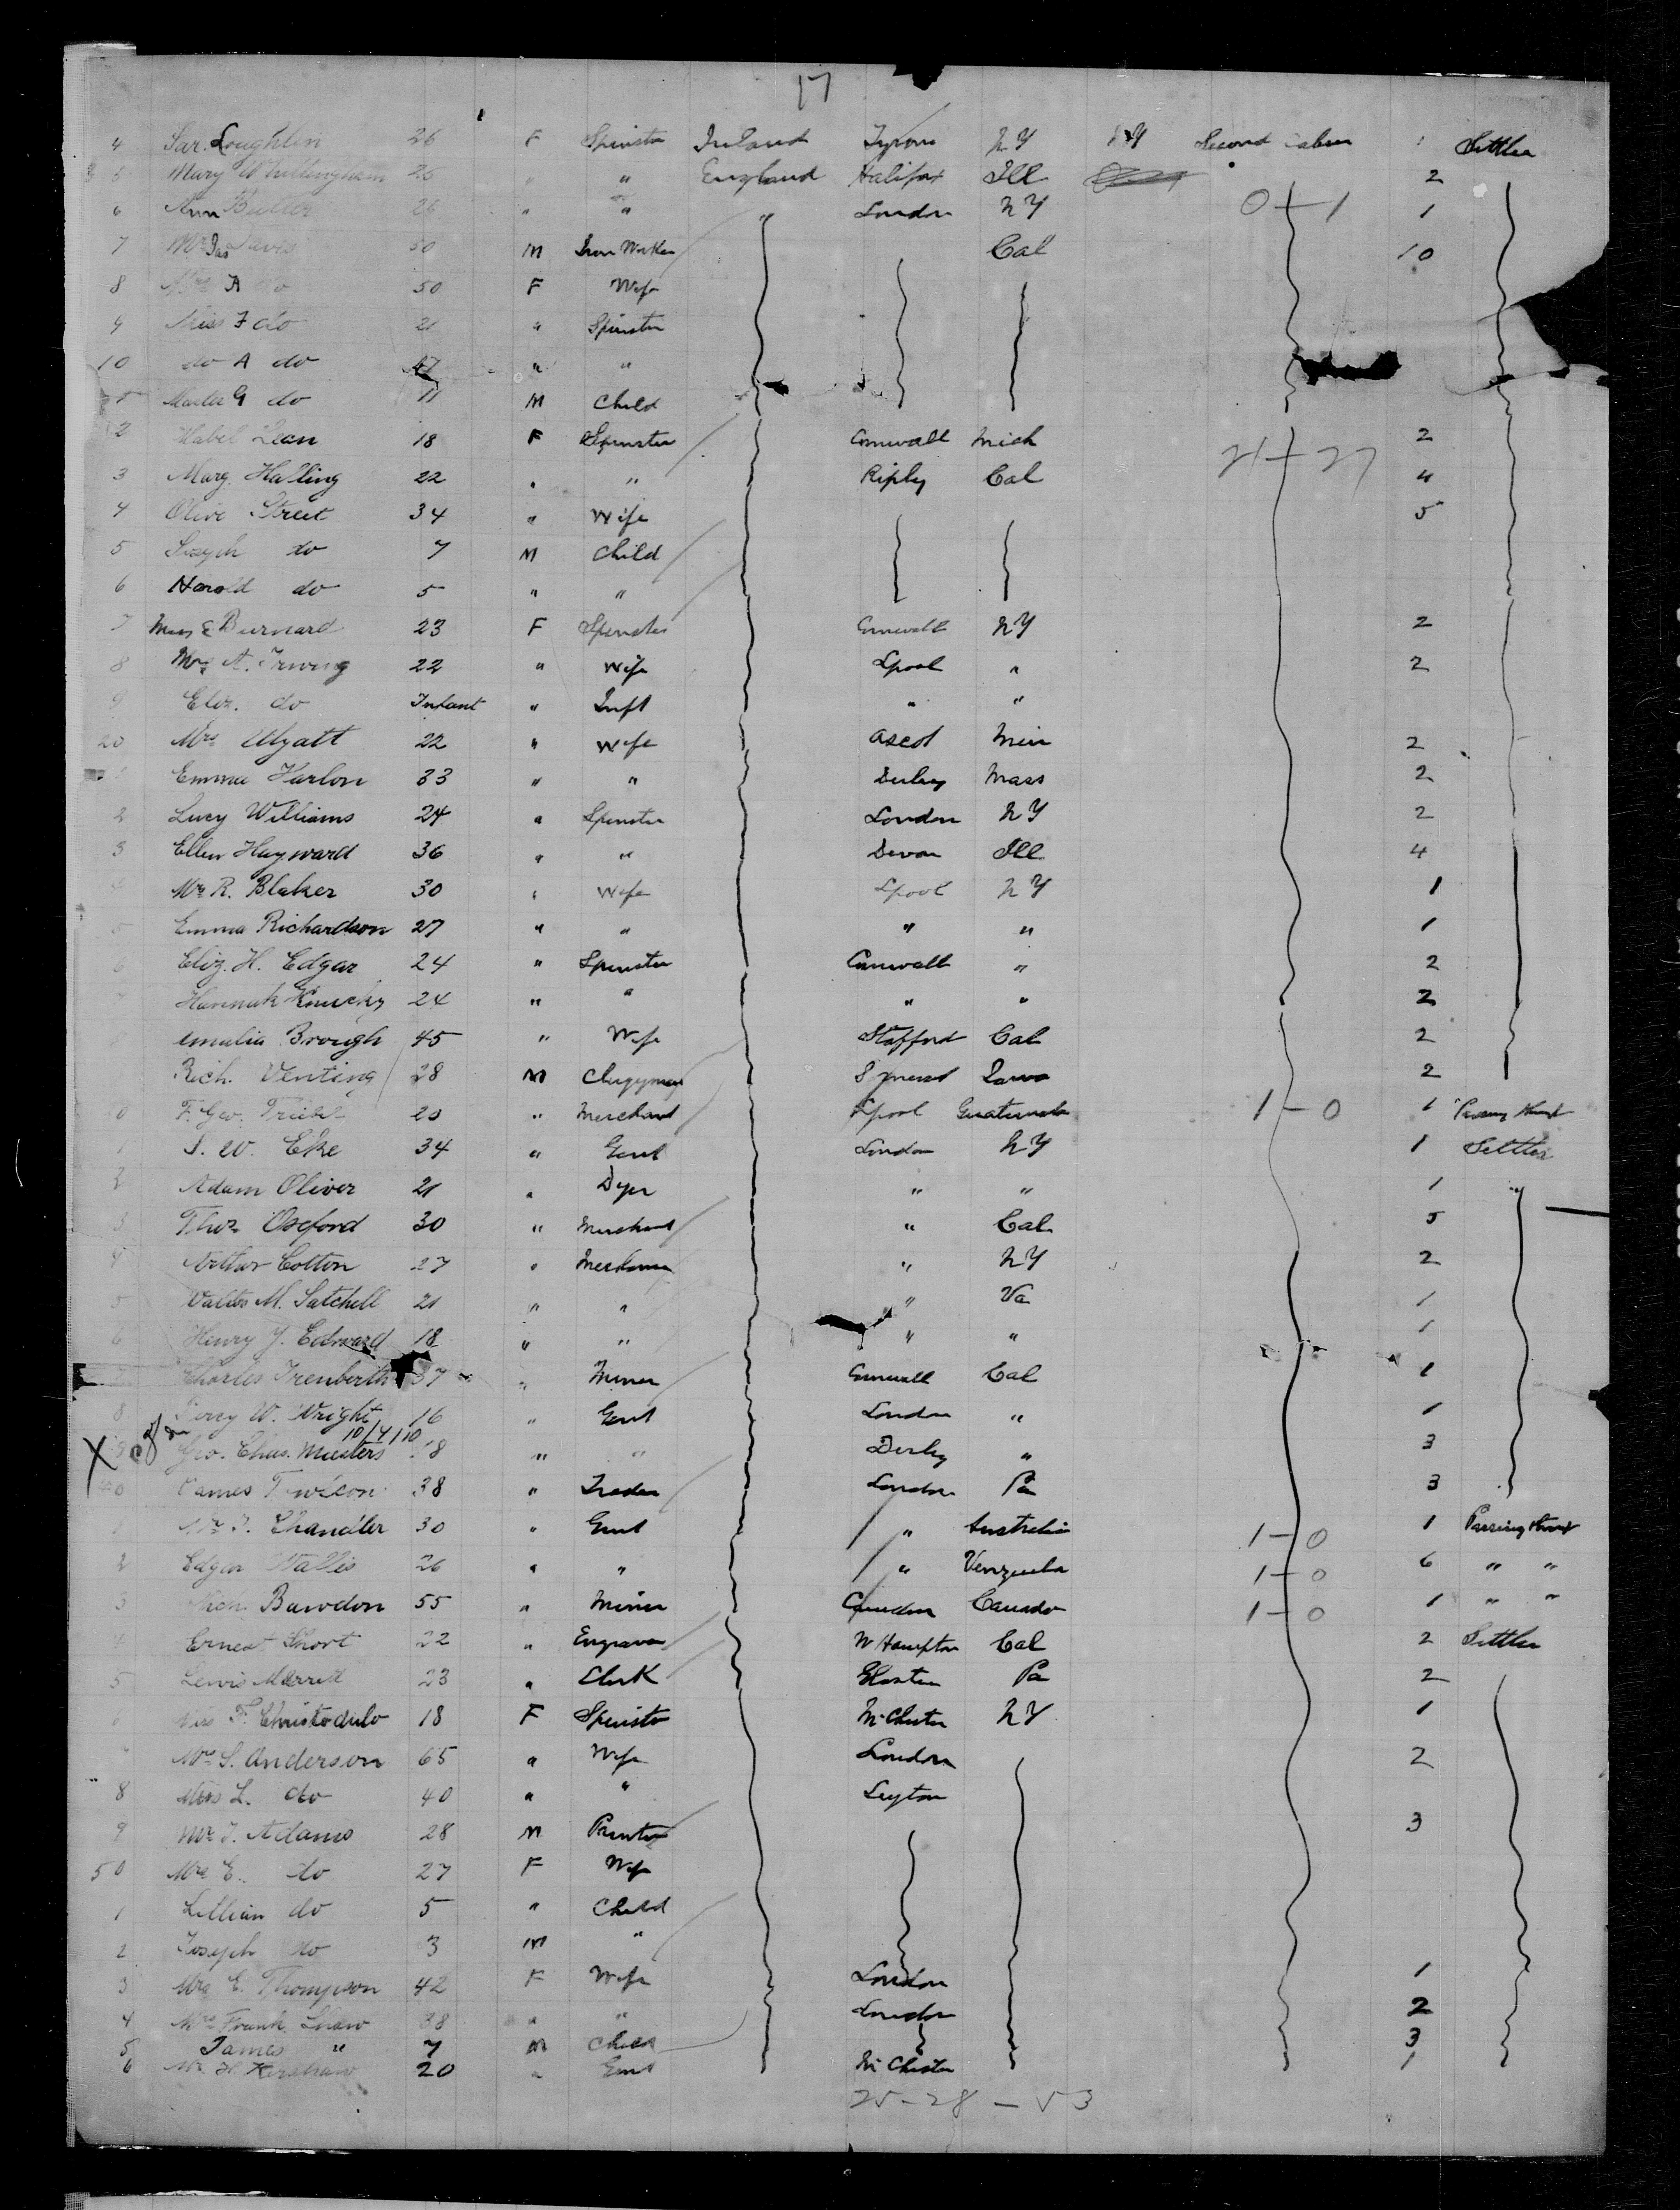 17
4 Sar. Loughlin 26 F Spinster Ireland Tyrone NY NY Second Cabin 1 Settler
5 Mary Whittingham 25 " " England Halifax Ill 2
6 Ann Butler 26 " " " London NY 0-1 1
7 Mr Jas Davis 50 M Iron Worker Cal 10
8 Mrs A do 50 F Wife
9 Miss F do 21 " Spinster
10 do A do 17 " "
Master G do 11 M Child
2 Mabel Lean 18 F Spinster Cornwall Mich 2
21-27
3 Marg. Halling 22 " " Ripley Cal 4
4 Olive Street 34 " Wife 5
5 Joseph do 7 M Child
6 Harold do 5 " "
7 Miss E Burnard 23 F Spinster Cornwall NY 2
8 Mrs A. Irving 22 " Wife Lpool " 2
9 Eliz. do Infant " Inft " "
20 Mrs Wyatt 22 " Wife Ascot Min 2
Emma Harlon 33 " " Derby Mass 2
2 Lucy Williams 24 " Spinster London NY 2
3 Ellen Hayward 36 " " Devon Ill 4
4 Mrs R. Blaker 30 " Wife Lpool NY 1
5 Emma Richardson 27 " " " " 1
6 Eliz. H. Edgar 24 " Spinster Cornwall " 2
7 Hannah 24 " " " " 2
Amalia Brough 45 " Wife Stafford Cal 2
Rich. Venting 28 M Clergyman Somerset Iowa 2
0 F. Geo. " Merchant Lpool Guatemala 1-0 1 Passing thro
1 J. W. Eke 34 " Gent London NY 1 Settler
2 Adam Oliver 21 " Dyer " " 1 "
3 Thos Oxford 30 " Merchant " Cal 5
4 Arthur Cotton 27 " " NY 2
5 Walter M. Satchell 21 " " " Va 1
6 Henry J. Edward 18 " " " " 1
Charles Trenberth 37 " Miner Cornwall Cal 1
8 Percy W. Wright 16 " Gent London " 1
X 10/4/10
9 Geo. Chas. Masters 18 " " Derby " 3
40 James T. 38 " Trader London Pa 3
1 Mr J. Chandler 30 " Gent " Australia 1-0 1 Passing thro
2 Edgar Wallis 26 " " " Venzuela 1-0 6 " "
3 Rich. Bawdon 55 " Miner Camdon Canada 1-0 1 " "
4 Ernest Short 22 " Engraver W Hampton Cal 2 Settler
5 Lewis Merrett 23 " Clerk Gloster Pa 2
6 Miss F. Christodulo 18 F Spinster M Chester NY 1
Mrs S. Anderson 65 " Wife London 2
8 Miss L. do 40 " " Leyton
9 Mr J. Adams 28 M Painter 3
50 Mrs E. do 27 F Wife
1 Lillian do 5 " Child
2 Joseph do 3 M "
3 Mrs E. Thompson 42 F Wife London 1
4 Mrs Frank Shaw 38 " " London 2
5 James " 7 M Child 3
6 Mr H Kershaw 20 " Gent M Chester 1
25-28-53